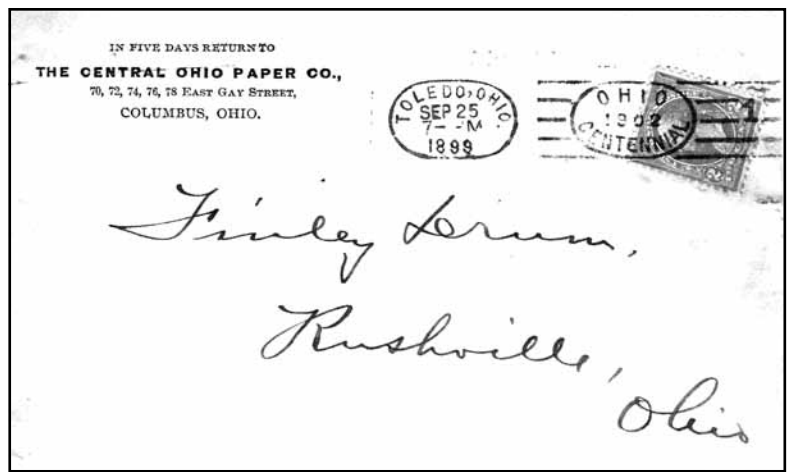 IN FIVE DAYS RETURN TO
THE CENTRAL OHIO PAPER CO.,
70, 72, 74, 76, 78 EAST GAY STREET,
COLUMBUS, OHIO.
TOLEDO, OHIO.
SEP 25
7- -M
1899
OHIO
1902
CENTENNIAL
1
Finley Drum,
Rushville,
Ohio